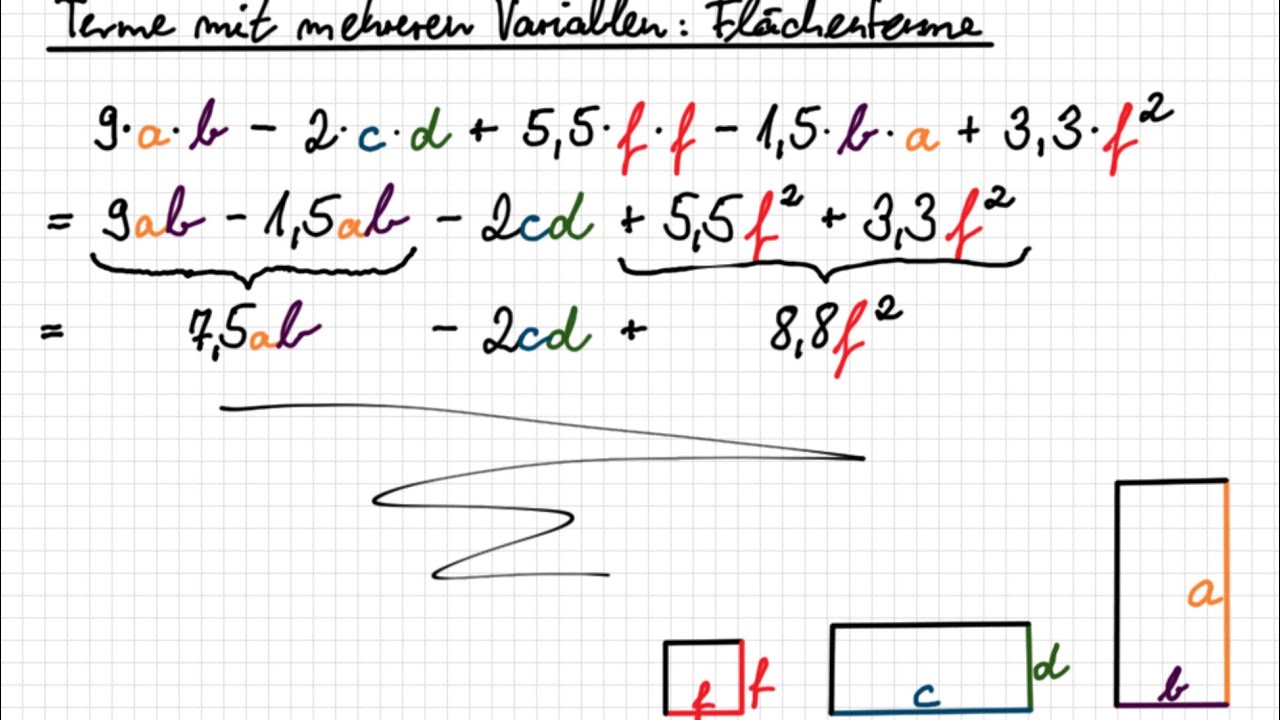 Terme mit mehreren Variablen: Flächenterme
9·a·b - 2·c·d + 5,5·f·f - 1,5·b·a + 3,3·f²
= 9ab - 1,5ab - 2cd + 5,5f² + 3,3f²
= 7,5ab - 2cd + 8,8f²
a
f f
c d
b